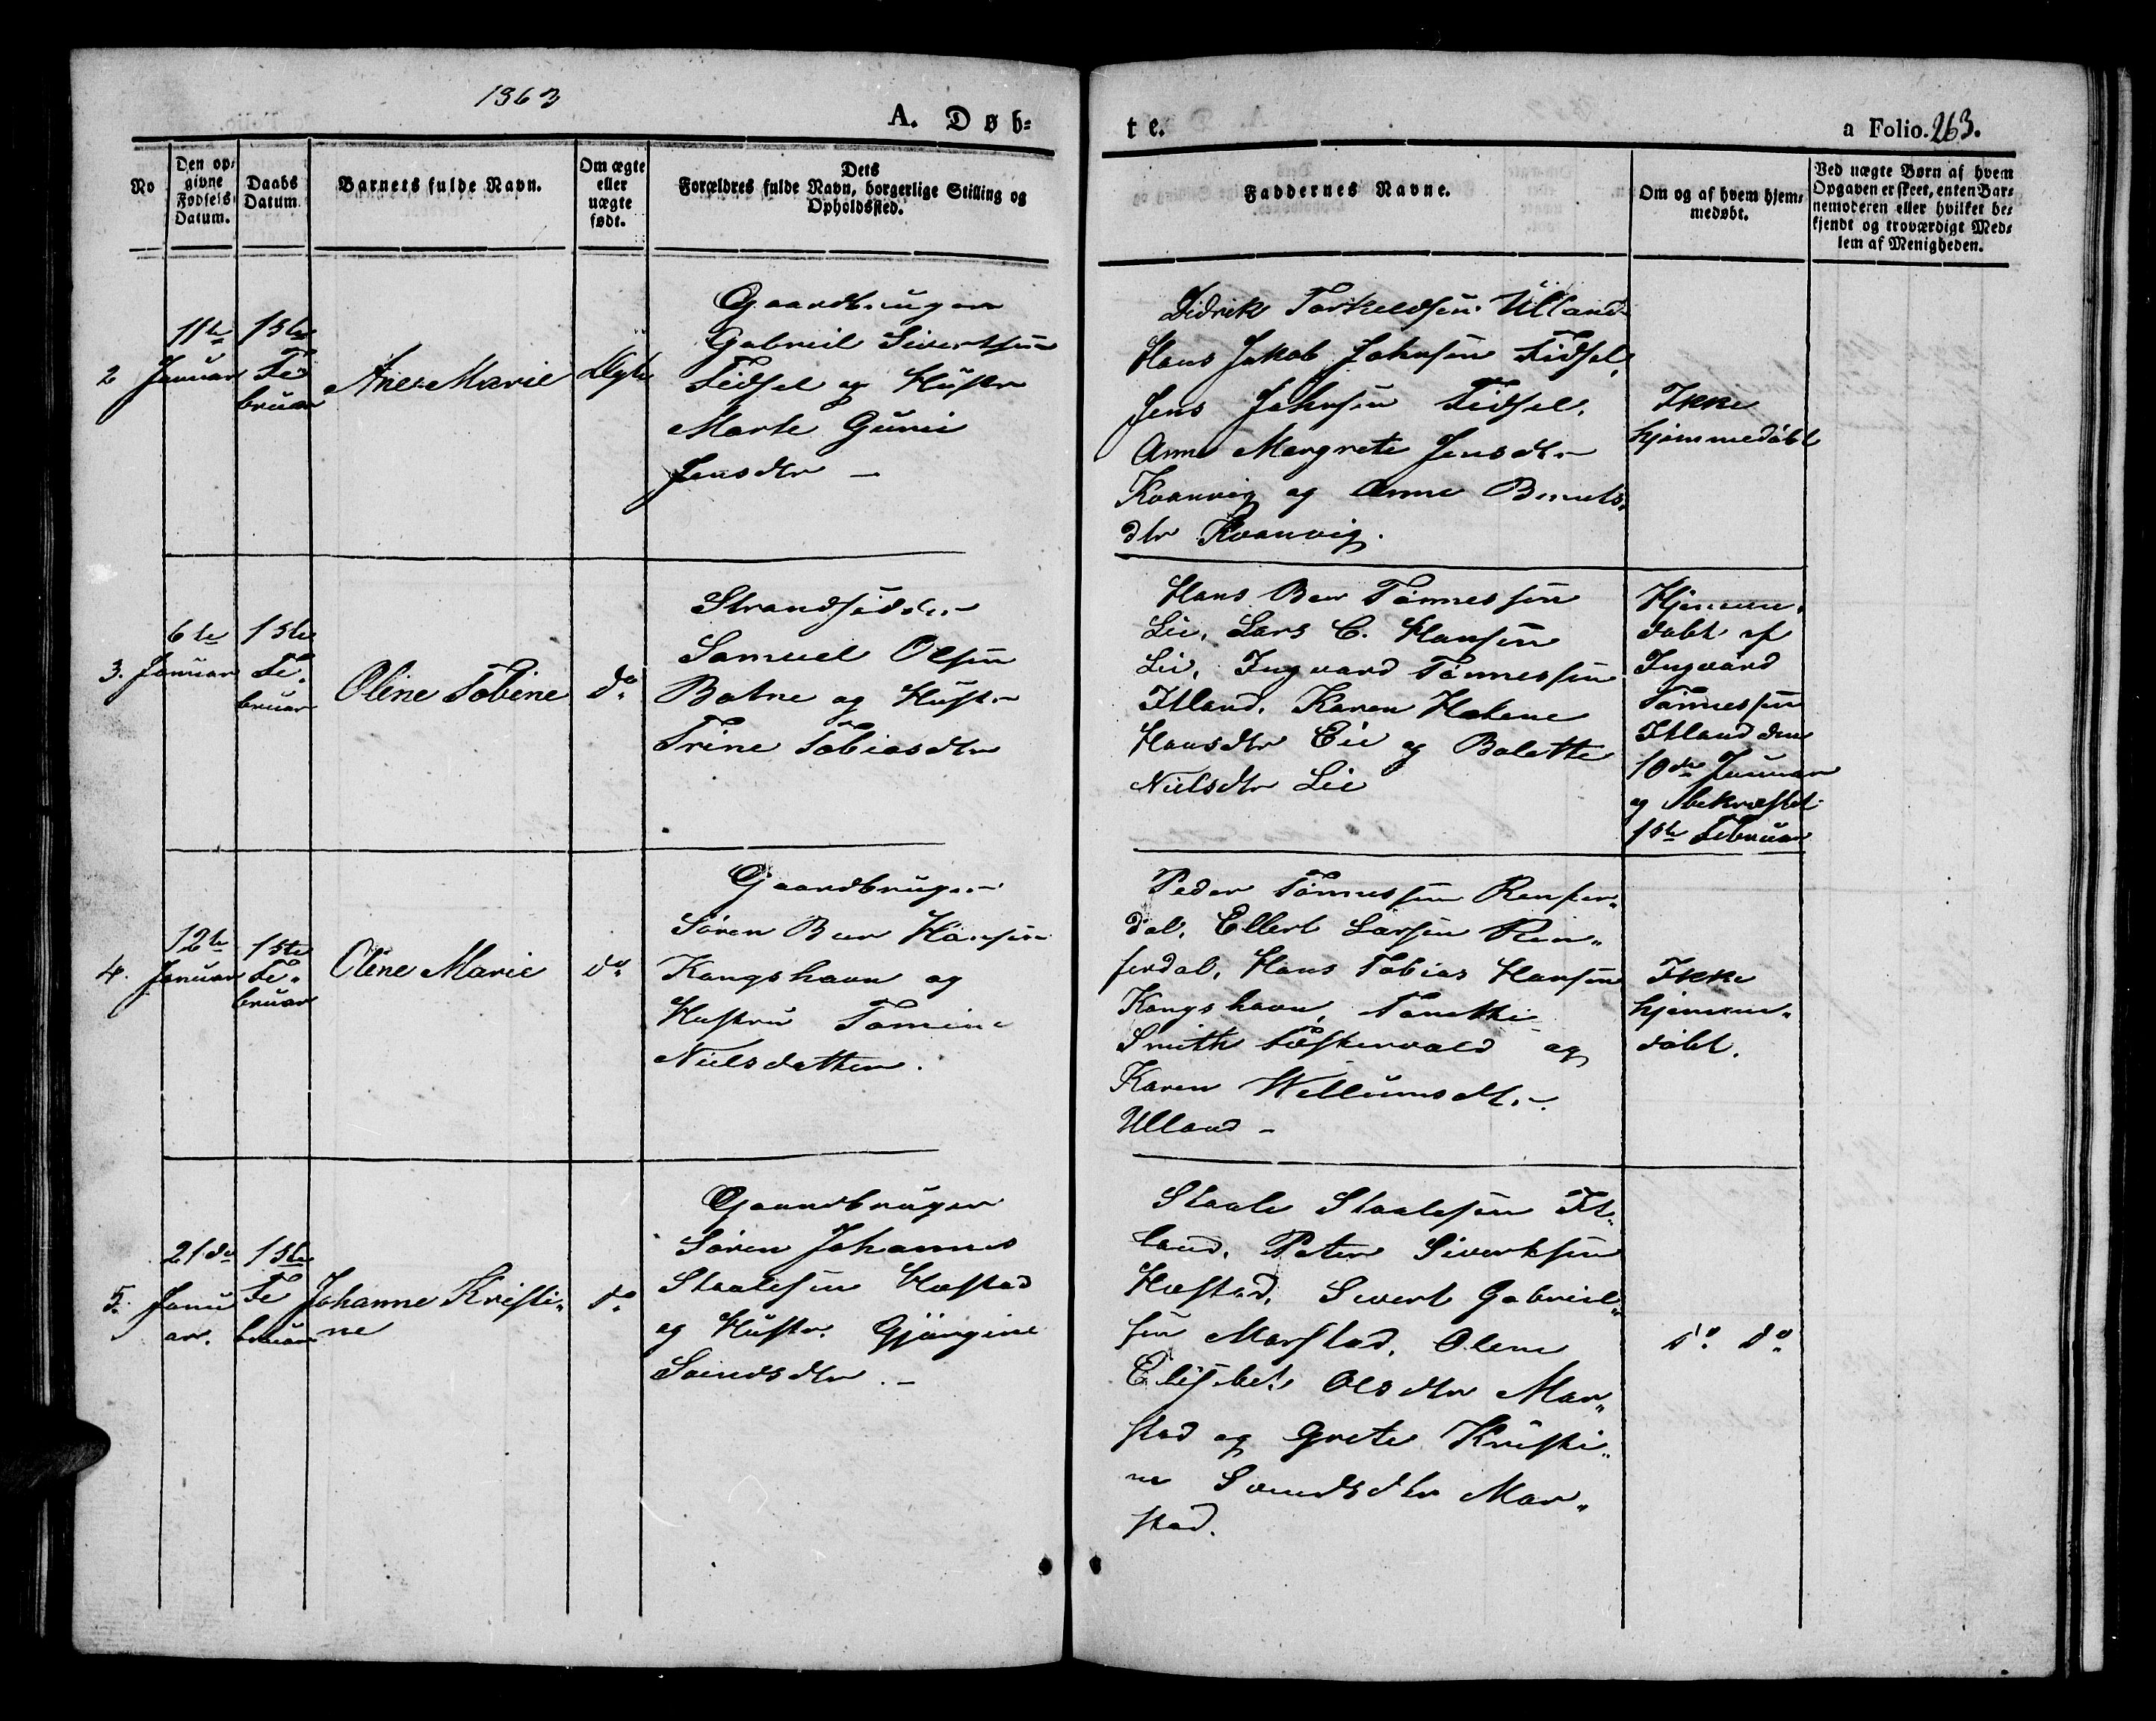 1863
A. Døb-
te.
a Folio. 263.
No
Den op-
givne
Fødsels
Datum.
Daabs
Datum
Barnets fulde Navn.
Om ægte
eller
uægte
født.
Dets
Forældres fulde Navn, borgerlige Stilling og
Opholdssted.
Faddernes Navne.
Om og af hvem hjem-
medøbt.
Ved uægte Børn af hvem
Opgaven er skeet, enten Bar-
nemoderen eller hvilket be-
kjendt og troværdigt Med-
lem af Menigheden.
2
11te
Januar
1ste
Fe
bruar
Ane Marie
Ægte
Gaardbruger
Gabriel Sivertsen
Fidsel og Hustr
Marte Gurie
Jensdtr —
Didrik Torkeldsen Ulland
Hans Jakob Johnsen Fidsel,
Jens Johnsen Fidsel.
Anne Margrete Jensdtr
Kvanvig og Anne Bernts-
dtr Kvanvig.
Ikke
hjemmedøbt
3.
6te
Januar
1ste
Fe-
bruar
Oline Tobine
do
Strandsidder
Samuel Olsen
Botne og Hustr
Trine Tobiasdtr
Hans Ber Tønnessen
Lie, Lars C. Hansen
Lie, Ingvard Tønnessen
Itland, Karen Helene
Hansdtr Eie og Bolette
Nielsdtr Lie
Hjemme-
døbt af
Ingvard
Tønnessen
Itland den
10de Januar
og bekræftet
1ste Februar
4.
12te
Januar
1ste
Fe-
bruar
Oline Marie
do
Gaardbruger
Søren Ber Hansen
Kongshavn og
Hustru Tomine
Nielsdatter.
Peder Tønnessen Renfer-
dal, Ellert Larsen Ren-
ferdal, Hans Tobias Hansen
Kongshavn,
Smith og
Karen Wellumsdtr
Ulland —
Ikke
hjemme-
døbt.
5.
21de
Janu
ar.
1ste
Fe
bruar
Johanne Kristi-
ne
do
Gaardbruger
Søren Johannes
Staalesen Hæstad
og Hustr. Gjørgine
Svendsdtr. —
Staale Staalesen It-
land, Peter Sivertsen
Hæstad, Sivert Gabriel-
sen Marstad, Olene
Elisabet Olsdtr Mar-
stad og Grete Kristi-
ne Svendsdtr Mar-
stad.
do do